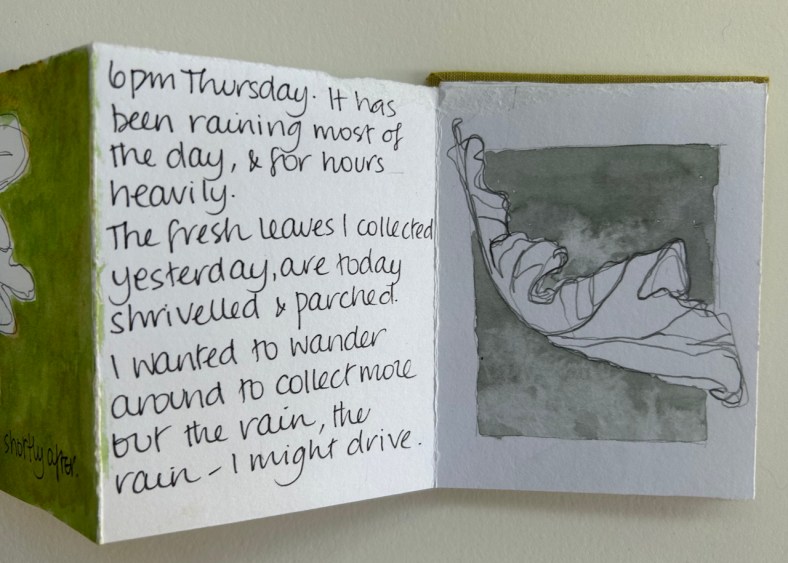 shortly after.
6pm Thursday. It has
been raining most of
the day, & for hours
heavily.
The fresh leaves I collected
yesterday, are today
shrivelled & parched.
I wanted to wander
around to collect more
but the rain, the
rain - I might drive.